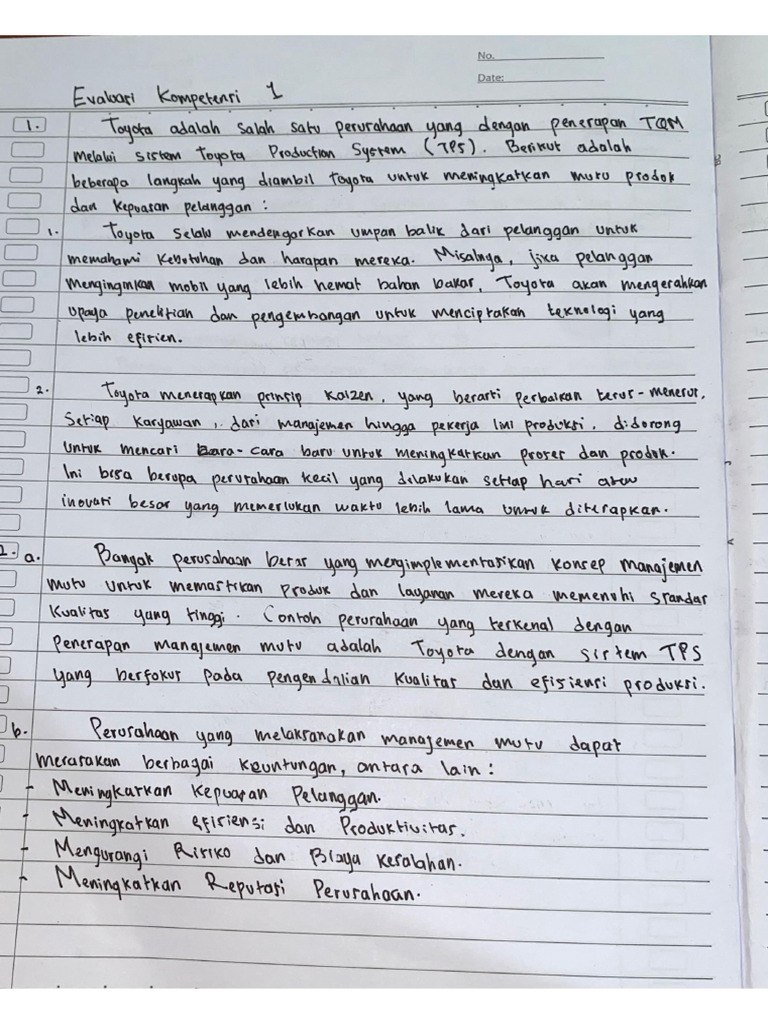 No.
Date:
Evaluasi Kompetensi 1
1. Toyota adalah salah satu perusahaan yang dengan penerapan TQM
melalui sistem Toyota Production System (TPS). Berikut adalah
beberapa langkah yang diambil Toyota untuk meningkatkan mutu produk
dan kepuasan pelanggan :
1. Toyota selalu mendengarkan umpan balik dari pelanggan untuk
memahami kebutuhan dan harapan mereka. Misalnya, jika pelanggan
menginginkan mobil yang lebih hemat bahan bakar, Toyota akan mengerahkan
upaya penelitian dan pengembangan untuk menciptakan teknologi yang
lebih efisien.
2. Toyota menerapkan prinsip kaizen, yang berarti perbaikan terus-menerus.
Setiap karyawan, dari manajemen hingga pekerja lini produksi, didorong
untuk mencari cara-cara baru untuk meningkatkan proses dan produk.
Ini bisa berupa perubahan kecil yang dilakukan setiap hari atau
inovasi besar yang memerlukan waktu lebih lama untuk diterapkan.
2. a. Banyak perusahaan besar yang mengimplementasikan konsep manajemen
mutu untuk memastikan produk dan layanan mereka memenuhi standar
kualitas yang tinggi. Contoh perusahaan yang terkenal dengan
penerapan manajemen mutu adalah Toyota dengan sistem TPS
yang berfokus pada pengendalian kualitas dan efisiensi produksi.
b. Perusahaan yang melaksanakan manajemen mutu dapat
merasakan berbagai keuntungan, antara lain :
- Meningkatkan Kepuasan Pelanggan.
- Meningkatkan efisiensi dan Produktivitas.
- Mengurangi Risiko dan Biaya Kesalahan.
- Meningkatkan Reputasi Perusahaan.